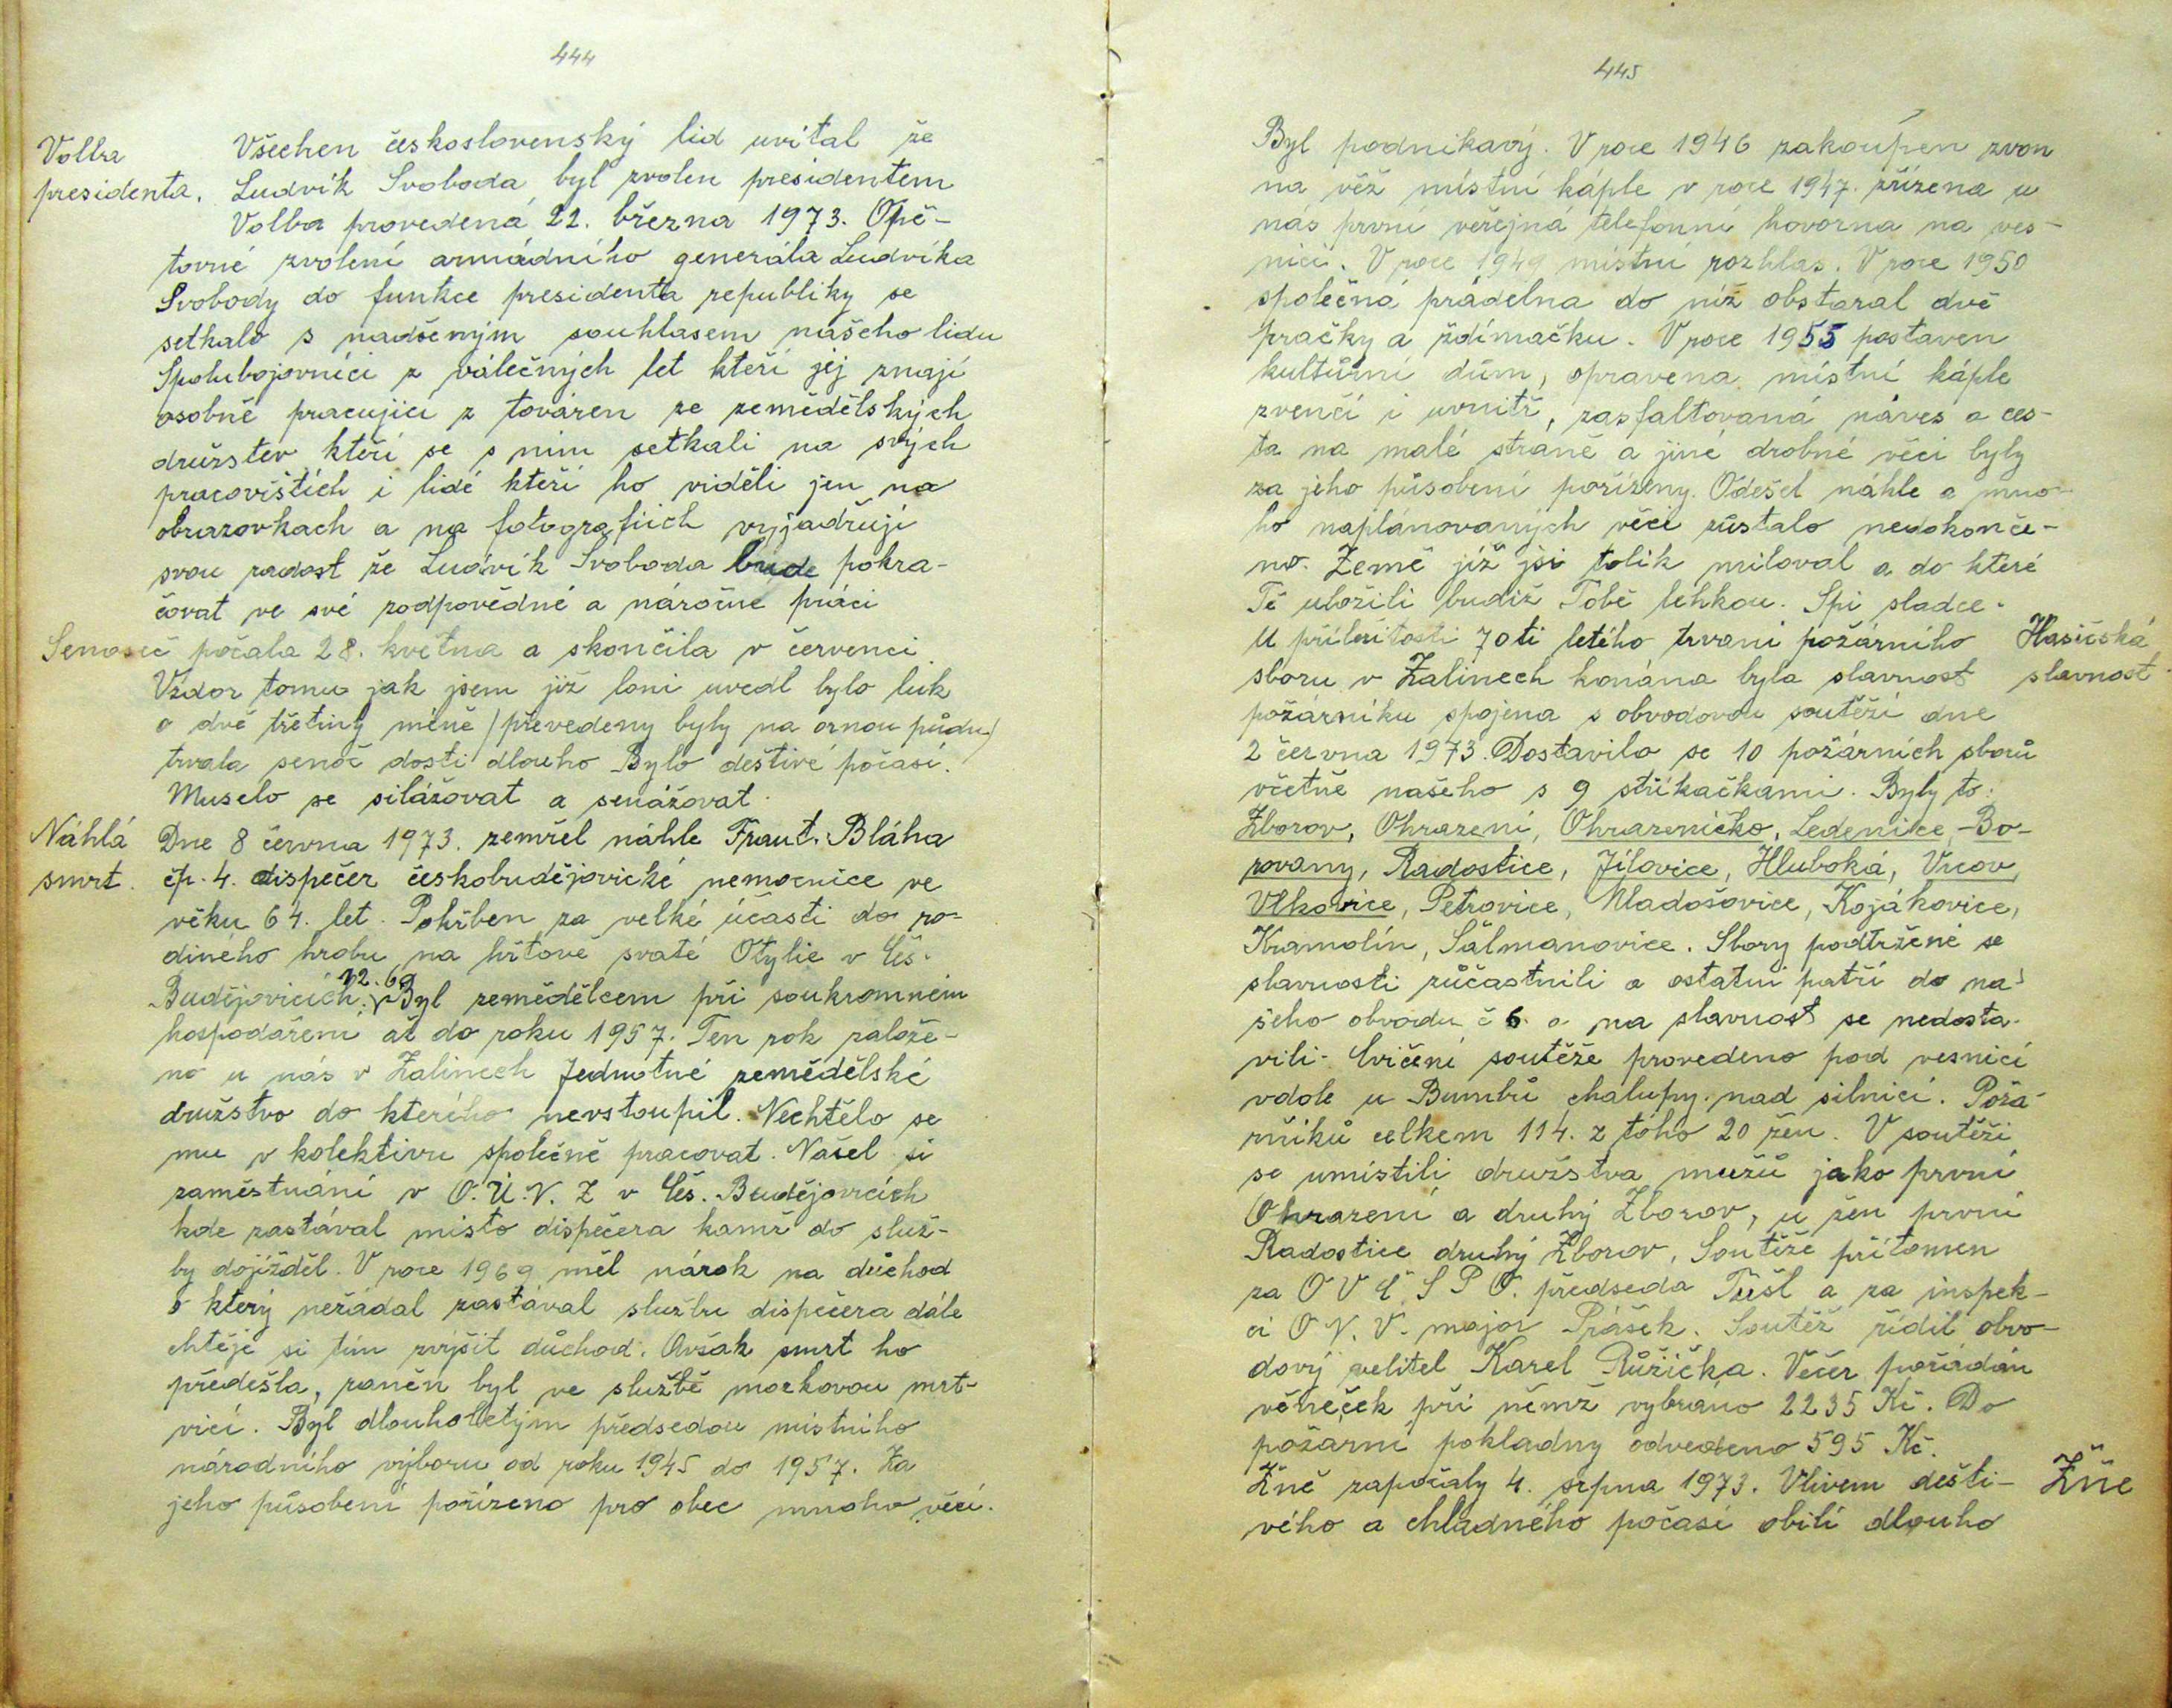 444
Volba
presidenta.
Všechen československý lid uvítal že
Ludvík Svoboda byl zvolen presidentem
Volba provedená 22. března 1973. Opě-
tovné zvolení armádního generála Ludvíka
Svobody do funkce presidenta republiky se
setkalo s nadšeným souhlasem našeho lidu
Spolubojovníci z válečných let kteří jej znají
osobně pracující z továren ze zemědělských
družstev kteří se s ním setkali na svých
pracovištích i lidé kteří ho viděli jen na
obrazovkach a na fotografiích vyjadřují
svou radost že Ludvík Svoboda bude pokra-
čovat ve své zodpovědné a náročne práci
Senoseč počala 28. května a skončila v červenci.
Vzdor tomu jak jsem již loni uvedl bylo luk
o dvě třetiny méně (převedeny byly na ornou půdu)
trvala senoč dosti dlouho Bylo deštivé počasí.
Muselo se silážovat a senážovat.
Náhlá
smrt.
Dne 8 června 1973. zemřel náhle Frant. Bláha
čp. 4. dispečer českobudějovické nemocnice ve
věku 64. let. Pohřben za velké účasti do ro-
diného hrobu na hřtově svaté Otylie v Čes.
Budějovicích. Byl zemědělcem při soukromném
hospodaření až do roku 1957. Ten rok založe-
no u nás v Zalinech Jednotné zemědělské
družstvo do kterého nevstoupil. Nechtělo se
mu v kolektivu společně pracovat. Našel si
zaměstnání v O.Ú.N.Z v Čes. Budějovicích
kde zastával místo dispečera kamž do služ-
by dojížděl. V roce 1969 měl nárok na důchod
o který nežádal zastával službu dispečera dále
chtěje si tím zvýšit důchod. Avšak smrt ho
předešla, raněn byl ve službě mozkovou mrt-
vicí. Byl dlouholetým předsedou místního
národního výboru od roku 1945 do 1957. Za
jeho působení pořízeno pro obec mnoho věcí.
445
Byl podnikavý. V roce 1946 zakoupen zvon
na věž místní káple v roce 1947. zřízena u
nás první veřejná telefonní hovorna na ves-
nici. V roce 1949 místní rozhlas. V roce 1950
společná prádelna do níž obstaral dvě
pračky a ždímačku. V roce 1955 postaven
kultůrní dům, opravena místní káple
zvenčí i uvnitř, zasfaltovaná náves a ces-
ta na malé straně a jiné drobné věci byly
za jeho působení pořízeny. Odešel náhle a mno-
ho naplánovaných věcí zůstalo nedokonče-
no. Země již jsi tolik miloval a do které
Tě uložili budiž Tobě lehkou. Spi sladce.
U příležitosti 70ti letého trvaní požárního
sboru v Zalinech konána byla slavnost
Hasičská
slavnost
požárníku spojena s obvodovou soutěží dne
2 června 1973. Dostavilo se 10 požárních sborů
včetně našeho s 9 stříkačkami. Byly to:
Zborov, Ohrazení, Ohrazeničko, Ledenice, Bo-
rovany, Radostice, Jílovice, Hluboká, Vrcov,
Vlkovice, Petrovice, Mladošovice, Kojákovice,
Kramolín, Šalmanovice. Sbory podtržené se
slavnosti zůčastnili a ostatní patří do na-
šeho obvodu č 6. a na slavnost se nedosta-
vili. Cvičení soutěže provedeno pod vesnicí
vdole u Bumbů chalupy nad silnicí. Požá-
rníků celkem 114. z toho 20 žen. V soutěži
se umístili družstva mužů jako první
Ohrazení a druhý Zborov, u žen první
Radostice druhý Zborov. Soutěže přítomen
za O V Č S P O. předseda Tůšl a za inspek-
ci O N. V. major Prášek. Soutěž řídil obvo-
dový velitel Karel Růžička. Večer pořádán
věneček při němž vybráno 2235 Kč. Do
požarní pokladny odvedeno 595 Kč.
Žně započaly 4. srpna 1973. Vlivem dešti-
Žně
vého a chladného počasí obilí dlouho